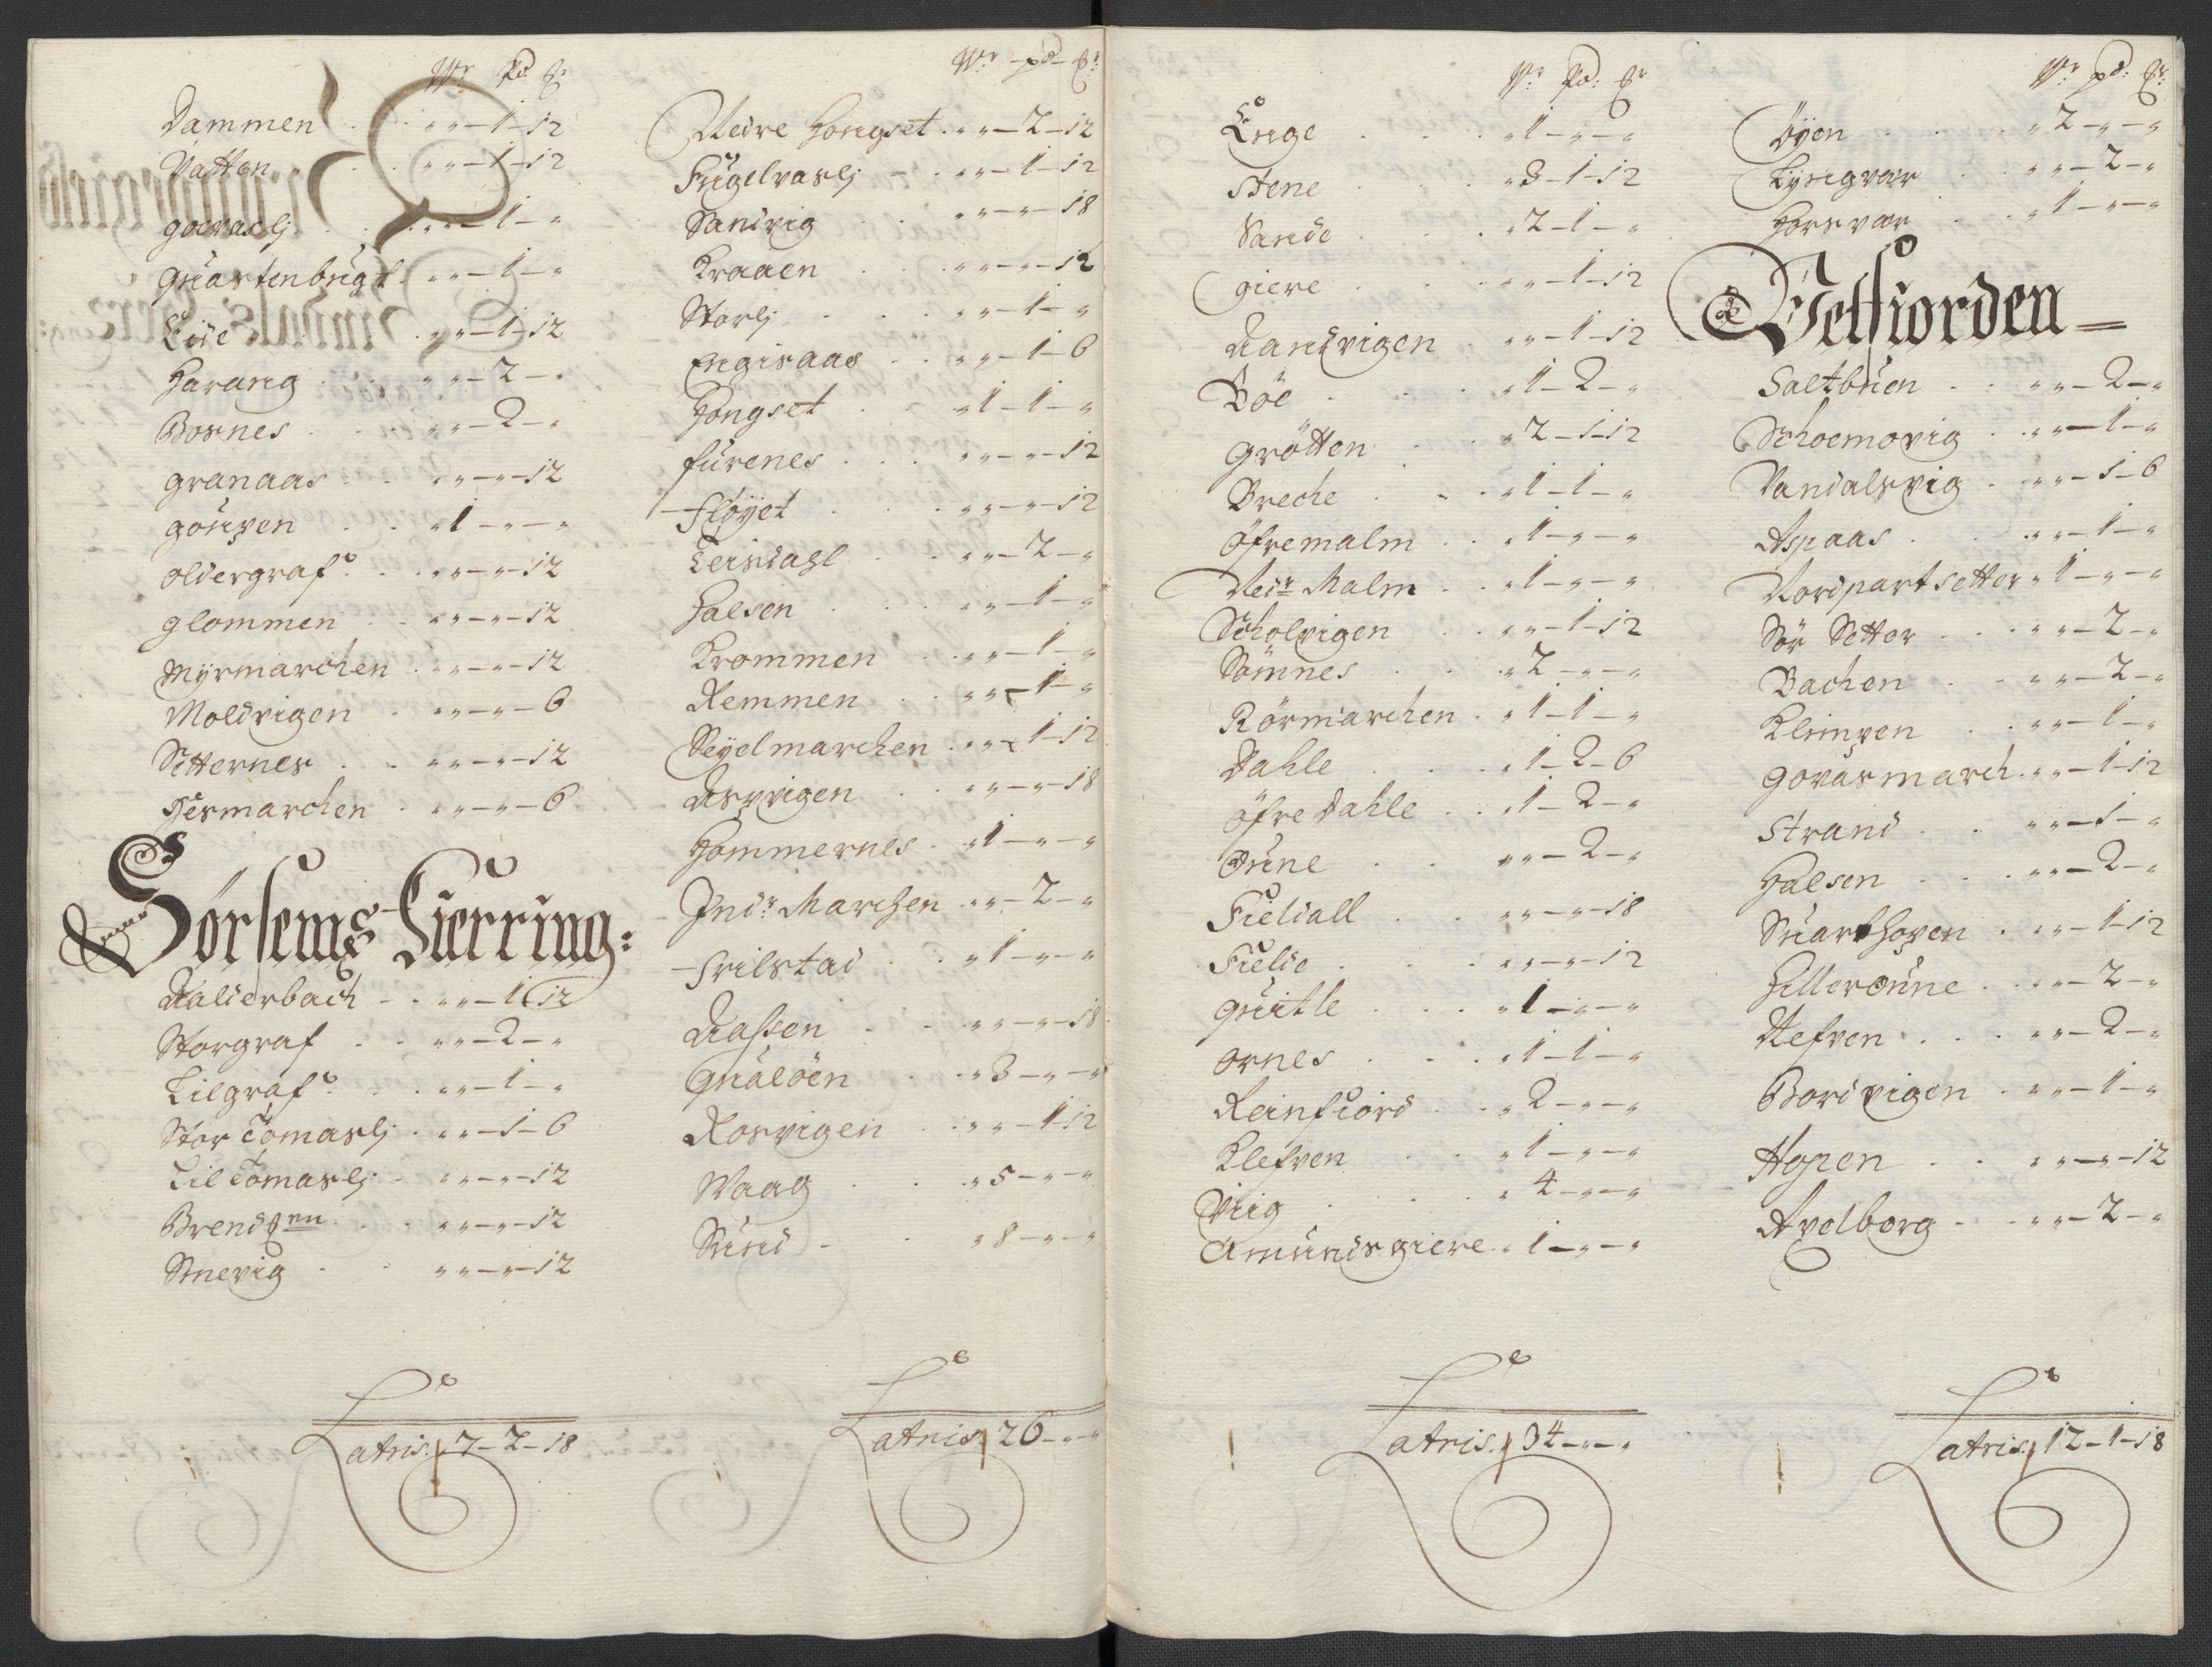 Wr Pd: Er
Dammen „ „ – 1 – 12
Vatten „ „ – 1 – 12
goevaslj „ „ – 1 – „
Quartenbugt „ „ – 1 – „
Eide „ „ – 1 – 12
Harang „ „ – 2 – „
Bosnes „ „ – 2 – „
granaas „ „ – „ – 12
goupen „ 1 – „ – „
oldergrafe „ „ – „ – 12
glommen „ „ – „ – 12
Myrmarchen „ „ – „ – 12
Moldvigen „ „ – „ – 6
Setternes „ „ – „ – 12
Hesmarchen „ „ – „ – 6
Sörsems Tierring:
Aalderbach „ „ – 1 – 12
Storgraf „ „ – 2 – „
Lilgrafe „ „ – 1 – „
Stor Tomaslj „ „ – 1 – 6
Lil Tomaslj „ „ – „ – 12
Brendgen „ „ – „ – 12
Snevig „ „ – „ – 12
Latris. 7 – 2 – 18
Wr – pd – Er
Nedre Hongset „ „ – 2 – 12
Fugelvaslj „ „ – 1 – 12
Sandvig „ „ – „ – 18
Kraaen „ „ – „ – 12
Storlj „ „ – 1 – „
Engisaas „ „ – 1 – 6
Hongset „ 1 – 1 – „
furenes „ „ – „ – 12
Fløyet „ „ – „ – 12
Leirdahl „ „ – 2 – „
Halsen „ „ – 1 – „
Krommen „ „ – 1 – „
Remmen „ „ – 1 – „
Seyelmarchen „ „ – 1 – 12
Aspvigen „ „ – „ – 18
Hommernes „ 1 – „ – „
Indr Marchen „ „ – 2 – „
Frilstad „ 1 – „ – „
Aassen „ „ – „ – 18
Qualöen „ 3 – „ – „
Rosvigen „ „ – 1 12
Waag „ 5 – „ – „
Sund „ 8 – „ – „
Latris 26 – „ – „
Wr Pd: Er
Enge „ 1 – „ – „
Stene „ 3 – 1 – 12
Sande „ 2 – 1 – „
giere „ „ – 1 – 12
Aandvigen „ „ – 1 – 12
Böe „ 1 – 2 – „
grötten „ 2 – 1 – 12
Breche „ 1 – 1 – „
Öfremalm „ 1 – „ – „
Nedr Malm „ 1 – „ – „
Scholvigen „ „ – 1 – 12
Sömnes „ 2 – „ – „
Rörmarchen „ 1 – 1 – „
Dahle „ 1 – 2 – 6
Öfre Dahle „ 1 – 2 – „
Dune „ „ – 2 – „
Fieldall „ „ – „ – 18
Fielde „ „ – „ – 12
Quitle „ 1 – „ – „
Ornes „ 1 – 1 – „
Reinfiord „ 2 – „ – „
Klefven „ 1 – „ – „
Viig „ 4 – „ – „
Amundsgiere „ 1 – „ – „
Latris. 34 – „ – „
Wr pd: Er
Öyen „ 2 – „ – „
Lyngvær „ „ – 2 – „
Horsvær „ 1 – „ – „
Velfiorden =
Saltbuen „ „ – 2 – „
Schoemovig „ „ – 1 – „
Vandalsvig „ „ – 1 – 6
Aspaas „ „ – 1 – „
Nordpartsetter „ 1 – „ – „
Sör Setter „ „ – 2 – „
Bachen „ „ – 2 – „
Klimpen „ „ – 1 – „
Govasmarch „ „ – 1 – 12
Strand „ „ – 1 – „
Halsen „ „ – 2 – „
Suarthopen „ „ – 1 – 12
Hillerdune „ „ – 2 – „
Nefven „ „ – 2 – „
Bordvigen „ „ – 1 – „
Hopen „ „ – „ – 12
Avelborg „ „ – 2 – „
Latris 12 – 1 – 18